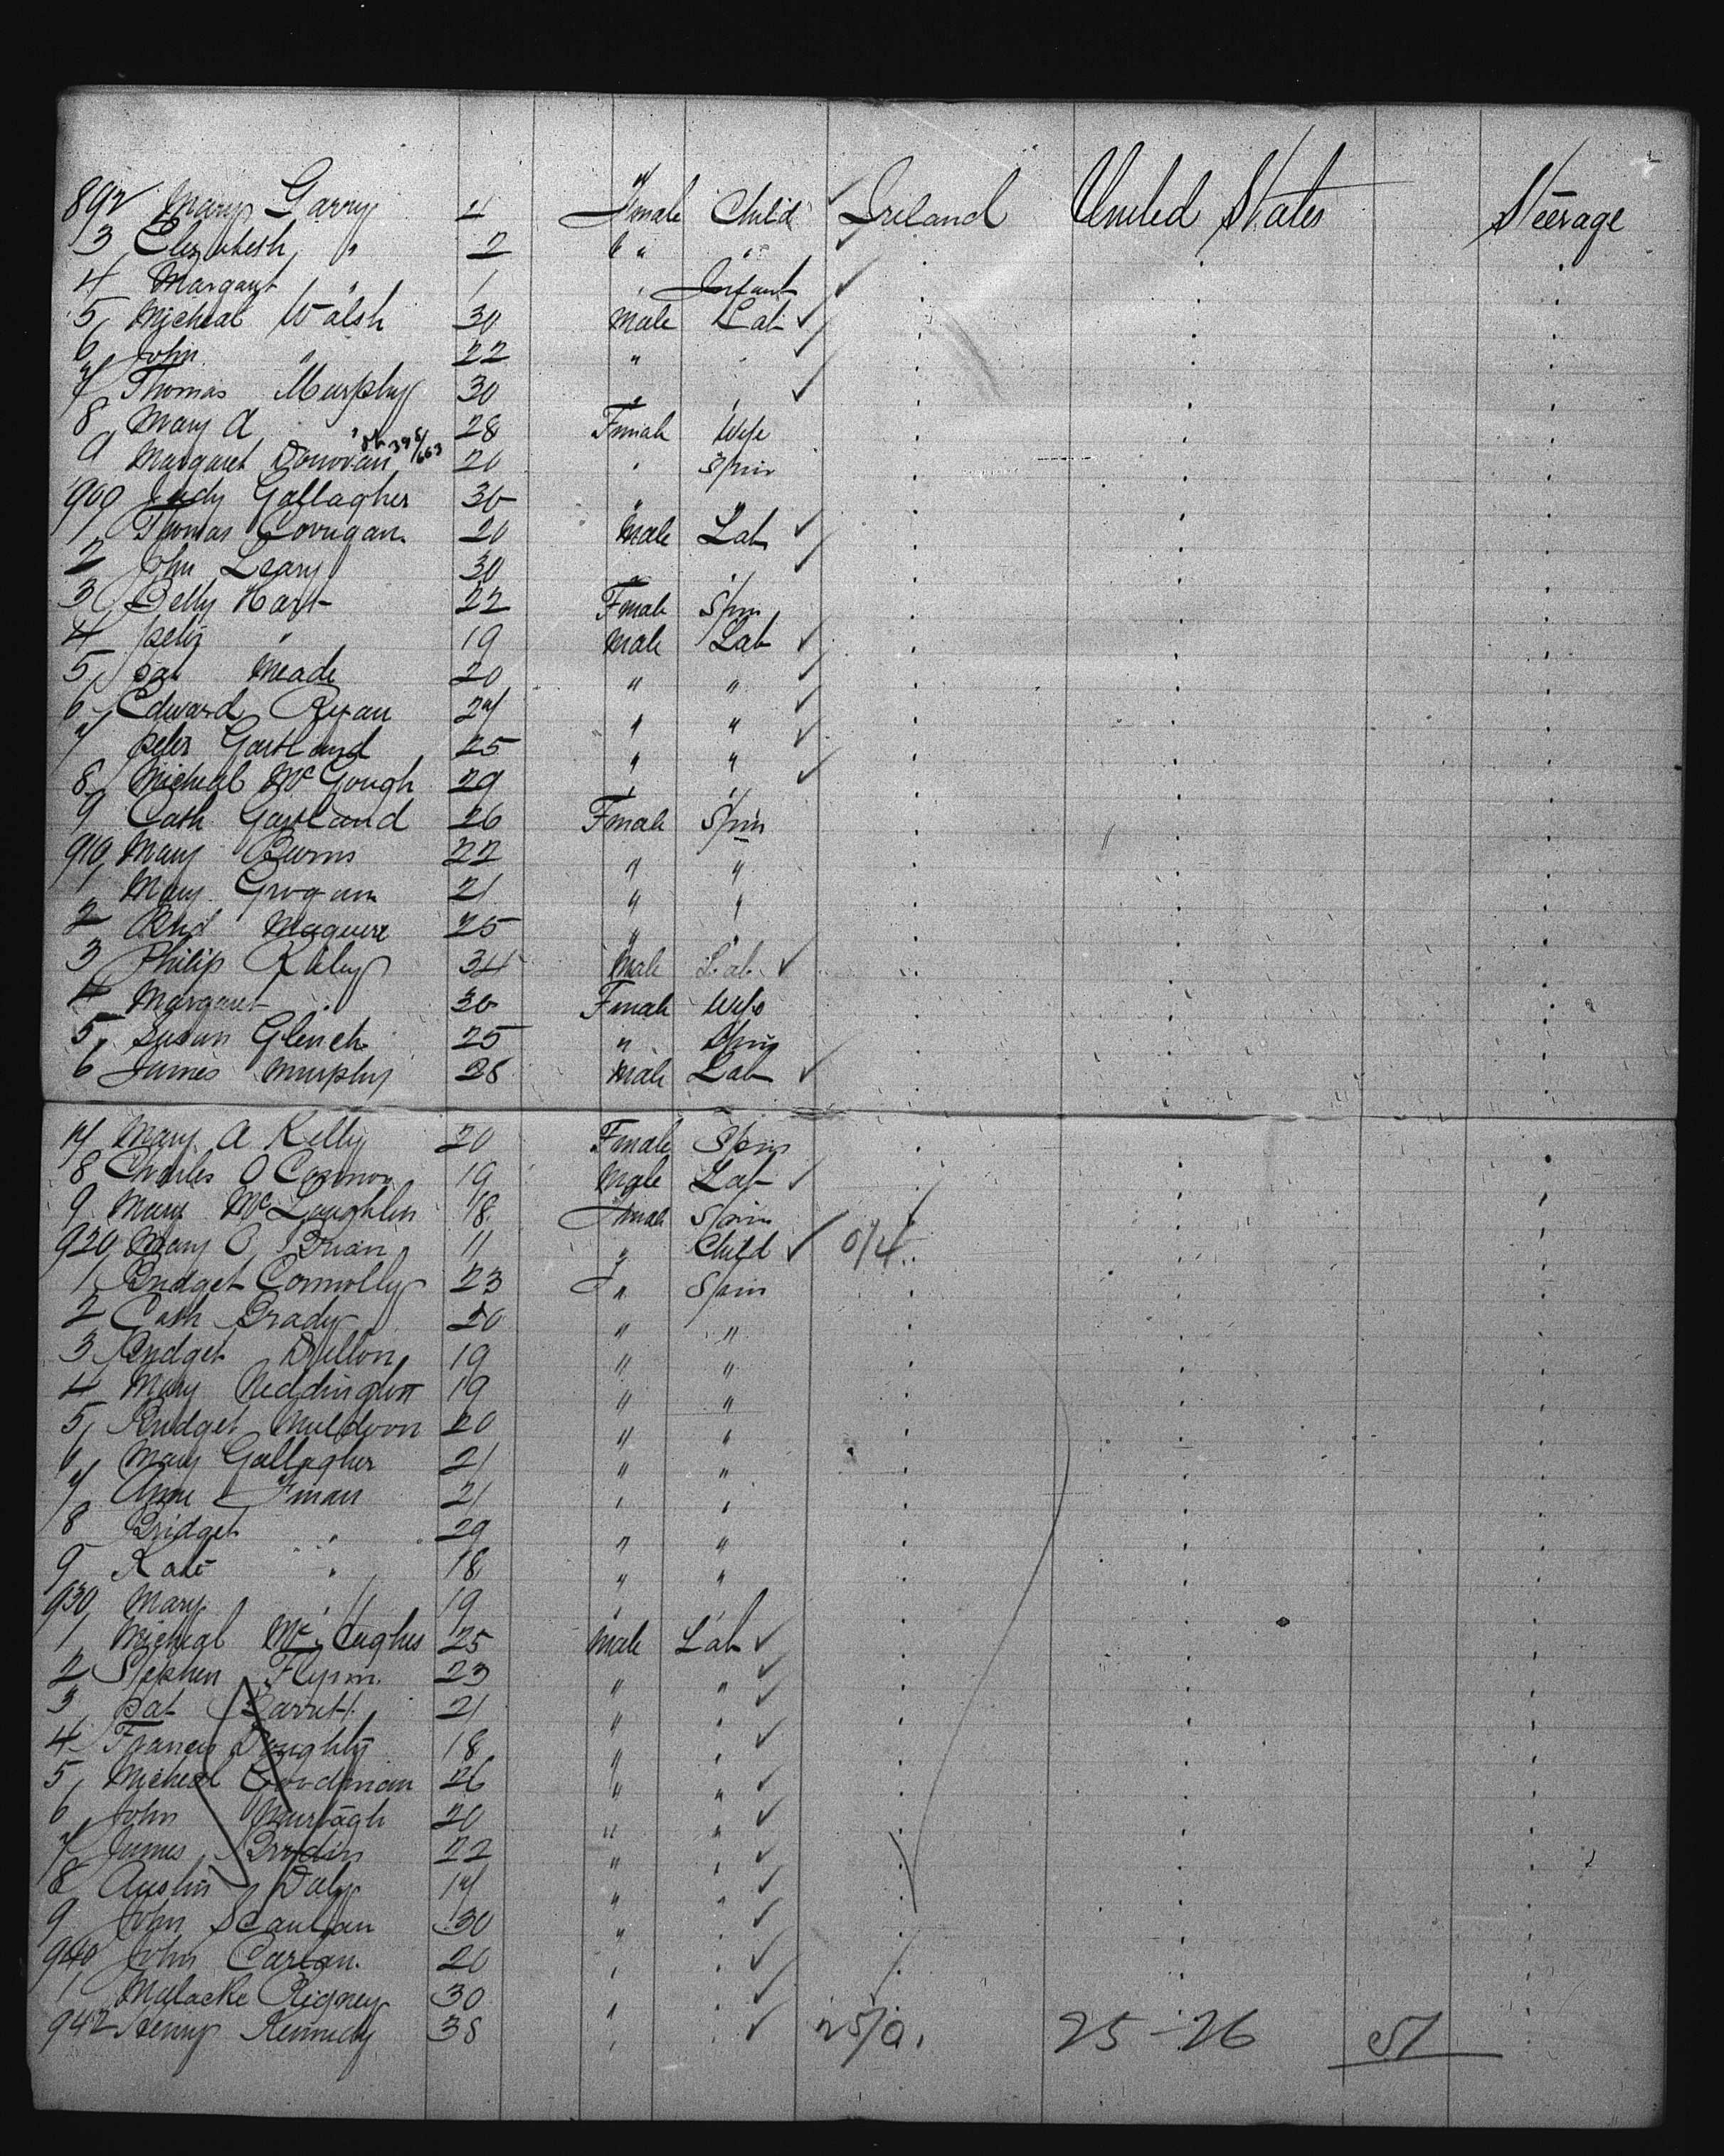 892 Mary Garry 4 Female Child ✓ Ireland United States Steerage
3 Elizabeth " 2 " " ✓
4 Margaret " 1 " Infant ✓
5 Micheal Walsh 30 Male Lab ✓
6 John " 22 " " ✓
7 Thomas Murphy 30 " " ✓
8 Mary A " 28 Female Wife
9 Margaret Donovan 20 " Spin
900 Judy Gallagher 30 " "
1 Thomas Corrigan 20 Male Lab ✓
2 John Leary 30 " " ✓
3 Delly Hart 22 Female Spin
4 Peter " 19 Male Lab ✓
5 Pat Meade 20 " " ✓
6 Edward Ryan 24 " " ✓
7 Peter Gartland 25 " " ✓
8 Micheal McGough 29 " " ✓
9 Cath Gartland 26 Female Spin
910 Mary Burns 22 " "
1 Mary Grogan 21 " "
2 Brid Maguire 25 " "
3 Philip Kiley 34 Male Lab ✓
4 Margaret " 30 Female Wife
5 Susan Glench 25 " Spin
6 James Murphy 28 Male Lab ✓
7 Mary A Kelly 20 Female Spin
8 Charles O Connor 19 Male Lab ✓
9 Mary McLoughlin 18 Female Spin
920 Mary O Brian 11 " Child ✓ 0/4
1 Bridget Connolly 23 " Spin
2 Cath Brady 20 " "
3 Bridget Dillon 19 " "
4 Mary Neddington 19 " "
5 Bridget Muldoon 20 " "
6 Mary Gallagher 21 " "
7 Anne Finan 21 " "
8 Bridget " 29 " "
9 Kate " 18 " "
930 Mary " 19 " "
1 Micheal McHughes 25 Male Lab ✓
2 Stephen Flynn 23 " " ✓
3 Pat Barrett 21 " " ✓
4 Francis Doughty 18 " " ✓
5 Micheal Goodman 26 " " ✓
6 John Murtagh 20 " " ✓
7 James Brodin 22 " " ✓
8 Austin Daly 17 " " ✓
9 John Scanlan 30 " " ✓
940 John Carlan 20 " " ✓
1 Malacke Rigney 30 " " ✓
942 Henry Kennedy 38 " " ✓ 25/0. 25-26 51